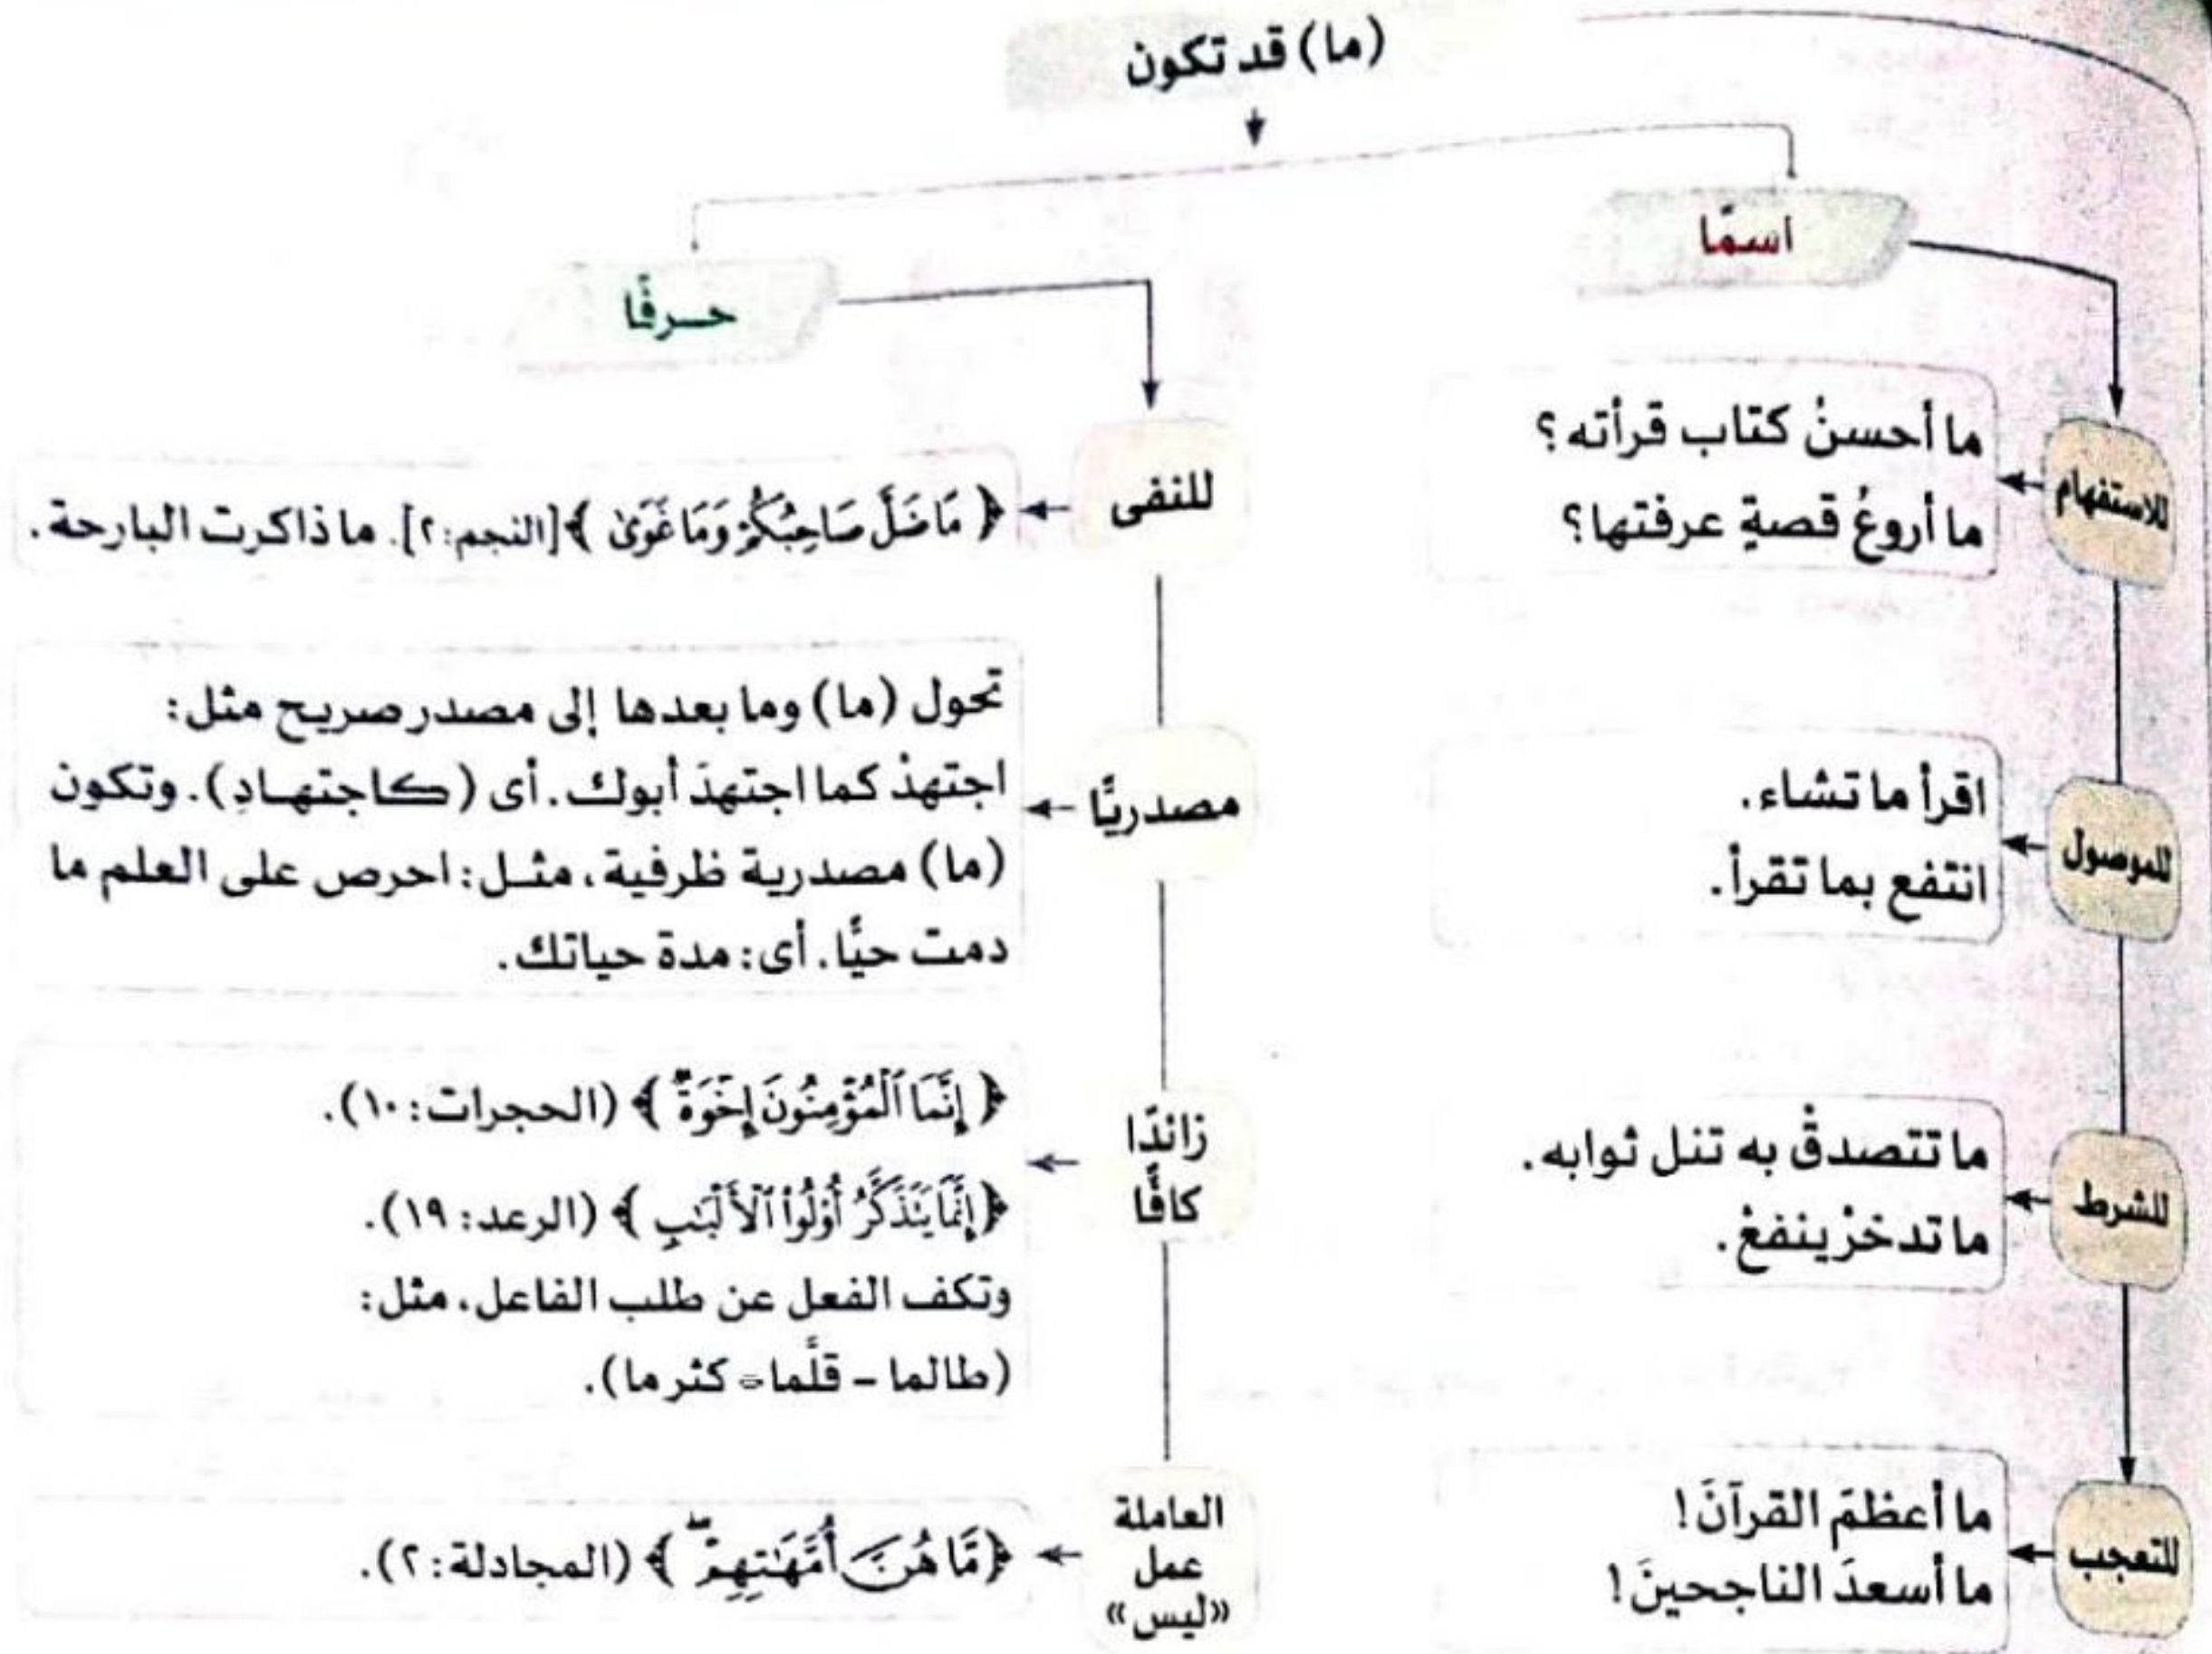 (ما) قد تكون
اسمًا
للاستفهام
ما أحسنُ كتاب قرأته؟
ما أروعُ قصةٍ عرفتها؟
للموصول
اقرأ ما تشاء.
انتفع بما تقرأ.
للشرط
ما تتصدقْ به تنل ثوابه.
ما تدخرْ ينفعْ.
للتعجب
ما أعظمَ القرآنَ!
ما أسعدَ الناجحينَ!
حرفًا
للنفى
﴿ مَا ضَلَّ صَاحِبُكُمْ وَمَا غَوَىٰ ﴾ [النجم:٢]. ما ذاكرت البارحة.
مصدريًّا
تحول (ما) وما بعدها إلى مصدر صريح مثل:
اجتهدْ كما اجتهدَ أبوك. أى (كاجتهادِ). وتكون
(ما) مصدرية ظرفية، مثل: احرص على العلم ما
دمت حيًّا. أى: مدة حياتك.
زائدًا
كافًّا
﴿ إِنَّمَا ٱلْمُؤْمِنُونَ إِخْوَةٌ ﴾ (الحجرات: ١٠).
﴿إِنَّمَا يَتَذَكَّرُ أُوْلُواْ ٱلْأَلْبَٰبِ ﴾ (الرعد: ١٩).
وتكف الفعل عن طلب الفاعل، مثل:
(طالما - قلَّما - كثر ما).
العاملة
عمل
«ليس»
﴿مَّا هُنَّ أُمَّهَٰتِهِمْ ۖ ﴾ (المجادلة: ٢).